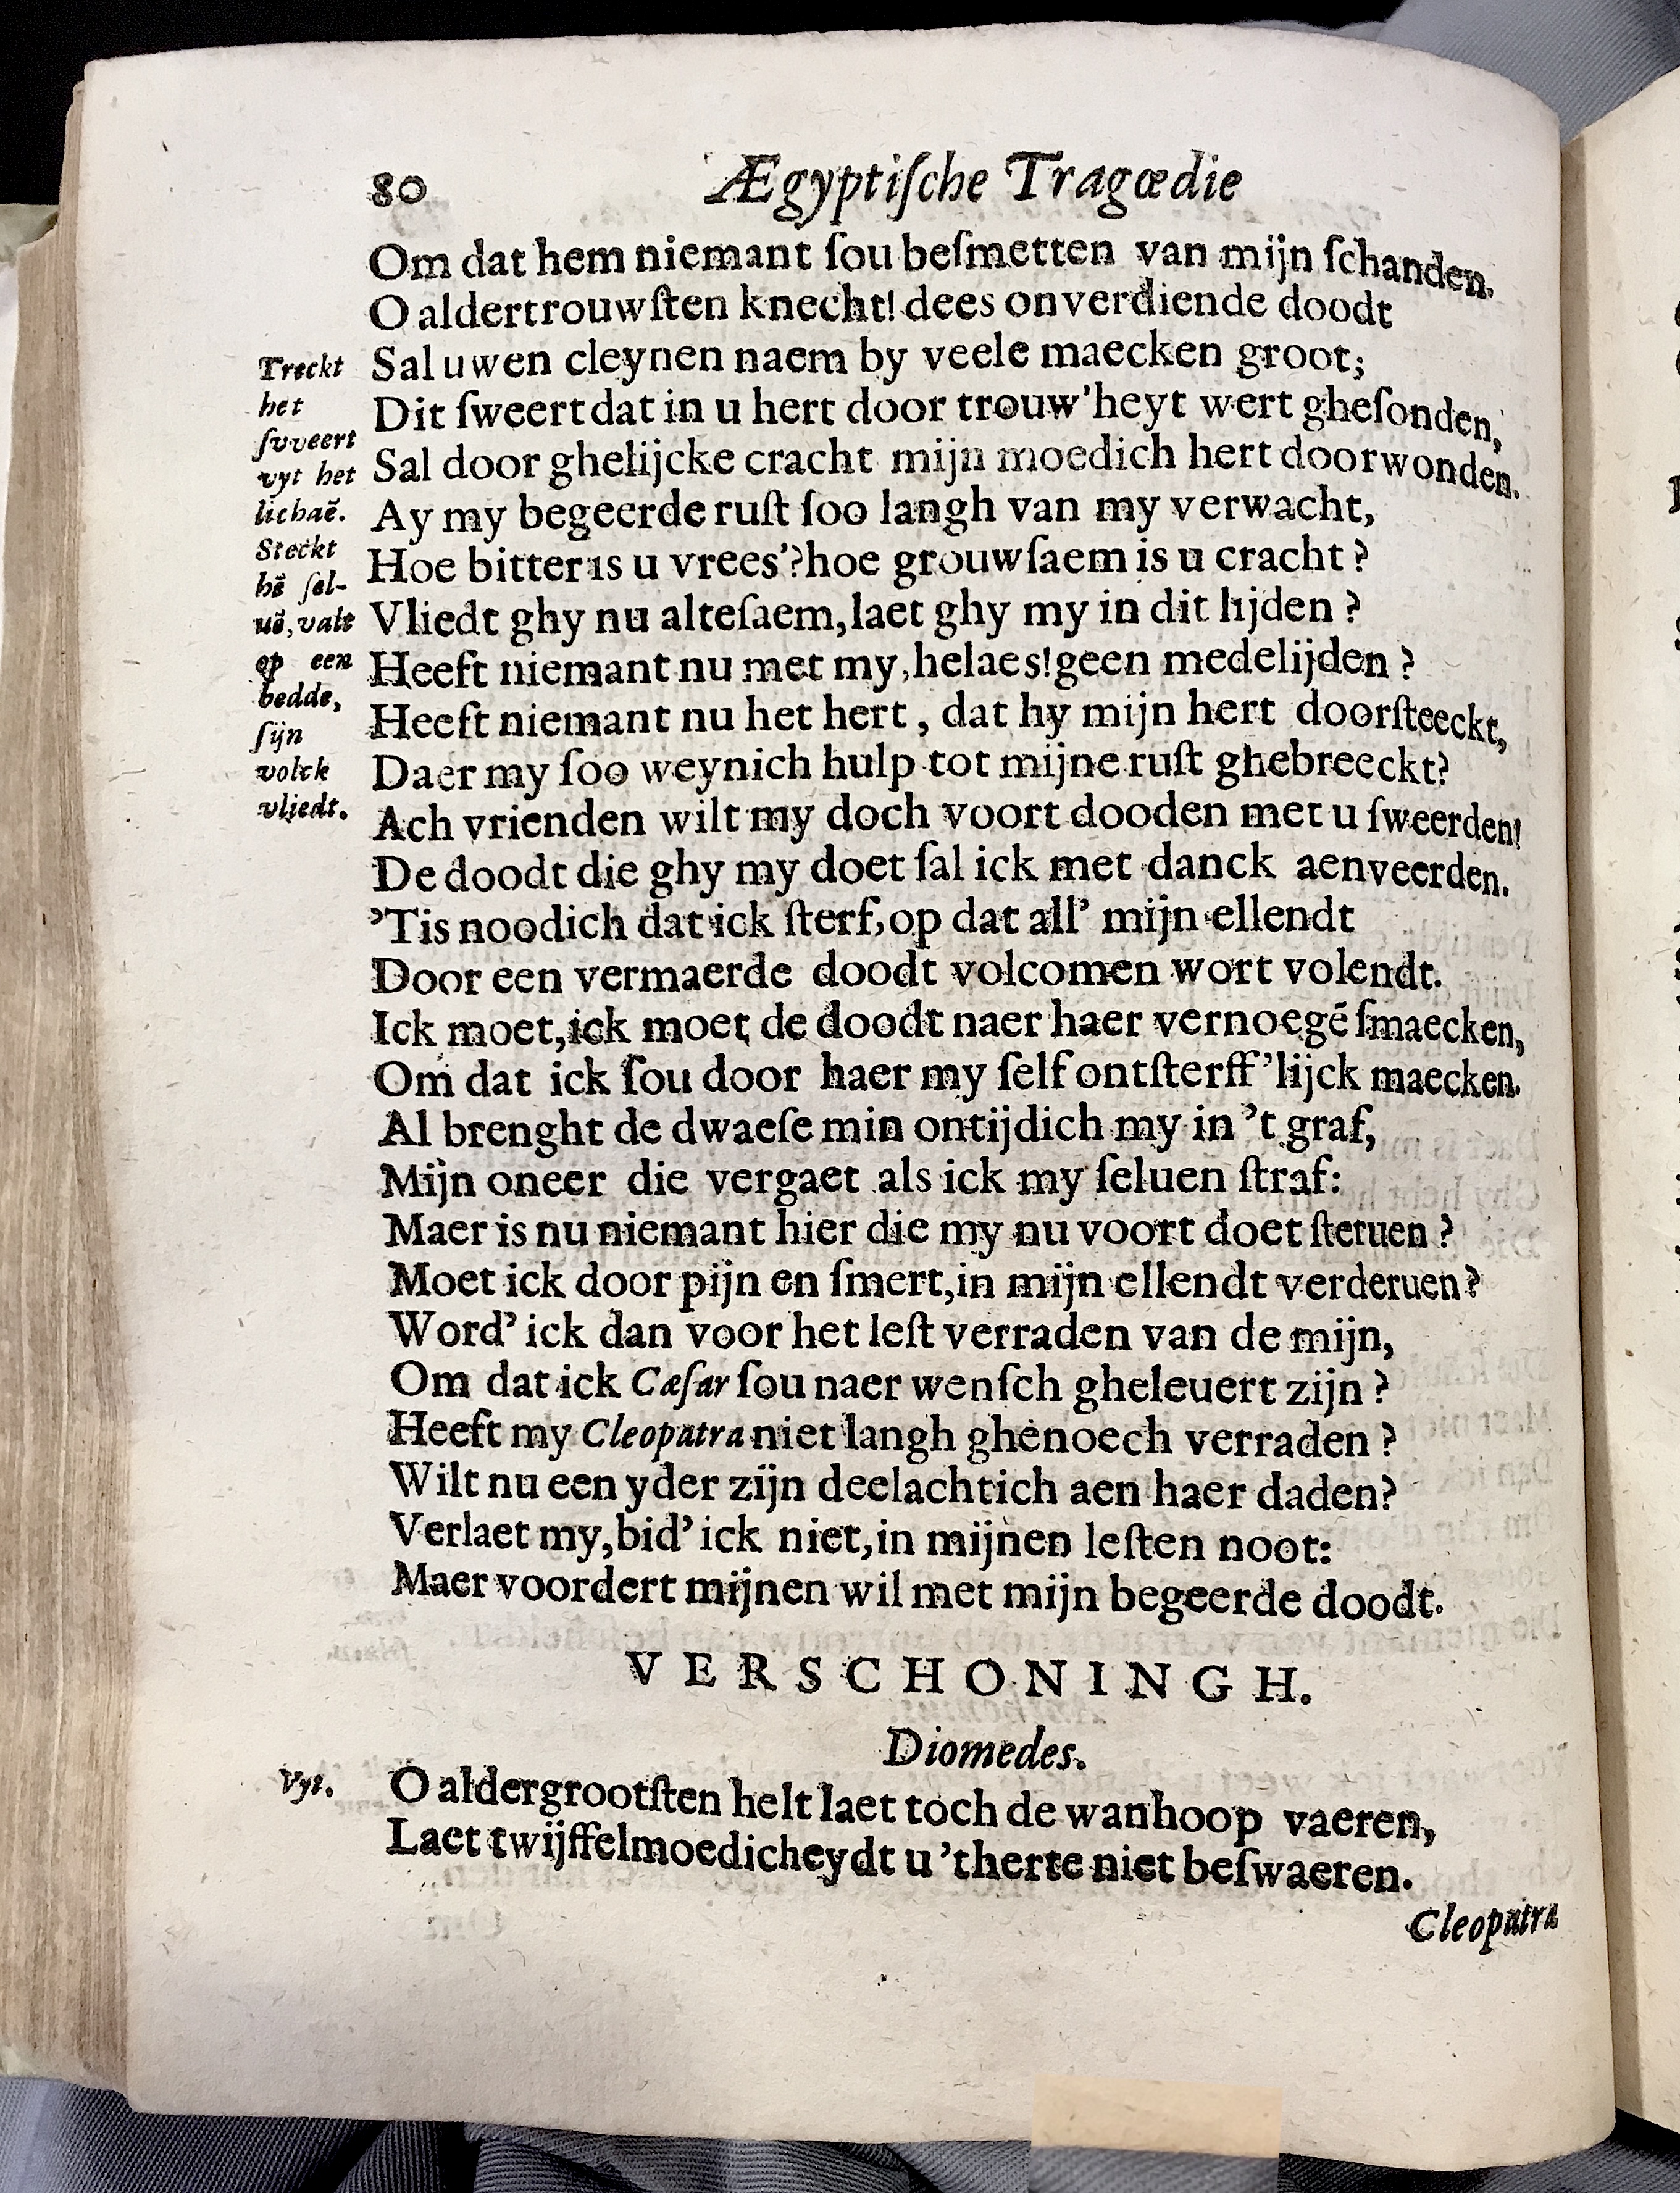 80 Ægyptiſche Tragœdie
Om dat hem niemant ſou beſmetten van mijn ſchanden.
O aldertrouwſten knecht! dees onverdiende doodt
Sal uwen cleynen naem by veele maecken groot;
Dit ſweert dat in u hert door trouw'heyt wert gheſonden,
Sal door ghelijcke cracht mijn moedich hert doorwonden.
Ay my begeerde ruſt ſoo langh van my verwacht,
Hoe bitter is u vrees'? hoe grouwſaem is u cracht?
Vliedt ghy nu alteſaem, laet ghy my in dit lijden?
Heeft niemant nu met my, helaes! geen medelijden?
Heeft niemant nu het hert, dat hy mijn hert doorſteeckt,
Daer my ſoo weynich hulp tot mijne ruſt ghebreeckt?
Ach vrienden wilt my doch voort dooden met u ſweerden!
De doodt die ghy my doet ſal ick met danck aenveerden.
'Tis noodich dat ick ſterf, op dat all' mijn ellendt
Door een vermaerde doodt volcomen wort volendt.
Ick moet, ick moet de doodt naer haer vernoegē ſmaecken,
Om dat ick ſou door haer my ſelf ontſterff'lijck maecken.
Al brenght de dwaeſe min ontijdich my in 't graf,
Mijn oneer die vergaet als ick my ſeluen ſtraf:
Maer is nu niemant hier die my nu voort doet ſteruen?
Moet ick door pijn en ſmert, in mijn ellendt verderuen?
Word' ick dan voor het leſt verraden van de mijn,
Om dat ick Cæſar ſou naer wenſch gheleuert zijn?
Heeft my Cleopatra niet langh ghenoech verraden?
Wilt nu een yder zijn deelachtich aen haer daden?
Verlaet my, bid' ick niet, in mijnen leſten noot:
Maer voordert mijnen wil met mijn begeerde doodt.
Treckt
het
ſvveert
vyt het
lichaē.
Steckt
hē ſel-
uē, valt
op een
bedde,
ſijn
volck
vliedt.
VERSCHONINGH.
Diomedes.
Vyt. O aldergrootſten helt laet toch de wanhoop vaeren,
Laet twijffelmoedicheydt u 'therte niet beſwaeren.
Cleopatra